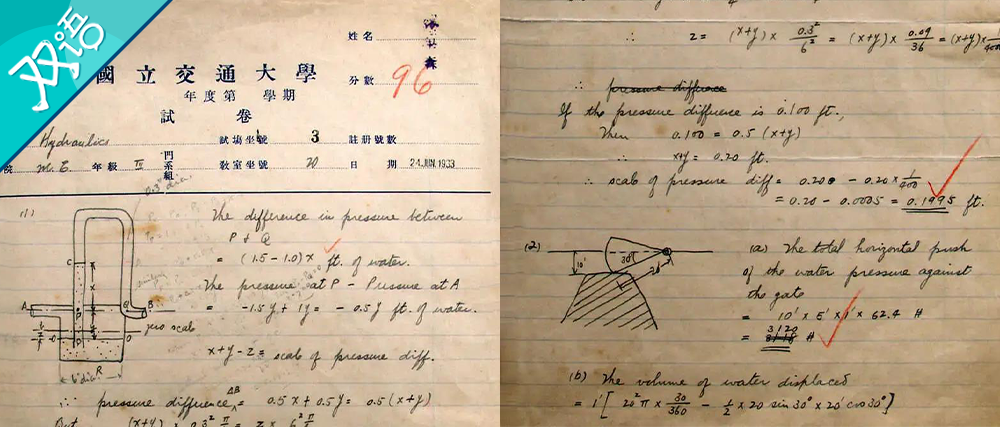 双语
姓名
國立交通大學
分數 96
年度第 學期
試卷
Hydraulics 試場坐號 3 註册號數
院 M.E. 年級 III 門系組 教室坐號 20 日期 24 JUN.1933
(1)
The difference in pressure between
P & Q
= (1.5 - 1.0)× ft. of water.
The pressure at P - Pressure at A
= -1.5y + 1y = - 0.5y ft. of water.
x+y-z = scale of pressure diff.
C
A
B
P
Q
x
y
zero scale
O
R
6" dia.
∴ pressure difference AB = 0.5x + 0.5y = 0.5(x+y)
But (x+y) × 0.3² π/ = z × 6² π/
∴ z = (x+y) × 0.3²/6² = (x+y) × 0.09/36 = (x+y) × 1/400
∴ pressure difference
If the pressure difference is 0.100 ft.,
Then 0.100 = 0.5 (x+y)
∴ x+y = 0.20 ft.
∴ scale of pressure diff = 0.200 - 0.20 × 1/400
= 0.20 - 0.0005 = 0.1995 ft.
(2)
10'
30°
(a) The total horizontal push
of the water pressure against
the gate
= 10' × 5' × 1' × 62.4 #
= 3120 #
(b) The volume of water displaced
= 1' [ 20² π × 30/360 - 1/2 × 20 sin 30° × 20' cos 30° ]